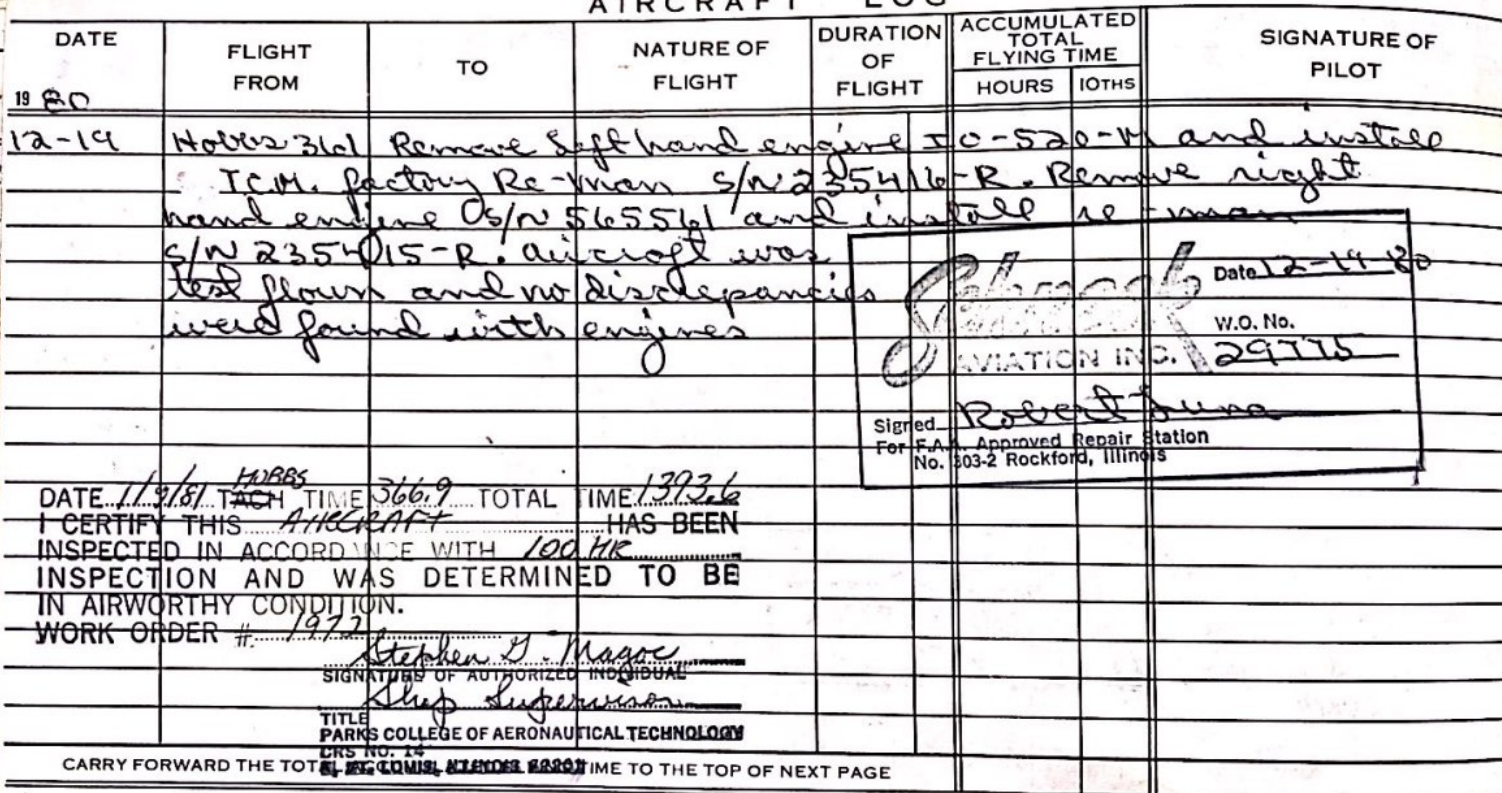 AIRCRAFT LOG
DATE
19 80
FLIGHT FROM
TO
NATURE OF FLIGHT
DURATION OF FLIGHT
ACCUMULATED TOTAL FLYING TIME
HOURS 10THS
SIGNATURE OF PILOT
12-19 Hobbs 361 Remove Left hand engine IO-520-M and install
T.C.M. factory Re-man S/N 235416-R. Remove right
hand engine S/N 565561 and install re-man
S/N 235415-R. aircraft was
test flown and no discrepancies
were found with engines
Date 12-19-80
W.O. No.
AVIATION INC. 29775
Signed Robert Luna
For F.A.A. Approved Repair Station
No. 303-2 Rockford, Illinois
HOBBS
DATE 1/9/81 TACH TIME 366.9 TOTAL TIME 1393.6
I CERTIFY THIS AIRCRAFT HAS BEEN
INSPECTED IN ACCORDANCE WITH 100 HR
INSPECTION AND WAS DETERMINED TO BE
IN AIRWORTHY CONDITION.
WORK ORDER # 1972
Stephen G. Magoc
SIGNATURE OF AUTHORIZED INDIVIDUAL
Shop Supervisor
TITLE
PARKS COLLEGE OF AERONAUTICAL TECHNOLOGY
CRS NO. 14
CARRY FORWARD THE TOTAL TIME TO THE TOP OF NEXT PAGE